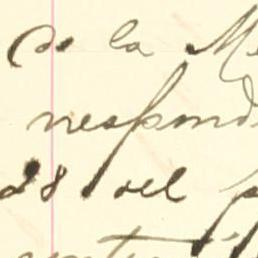 de la Me
respond
28 del p